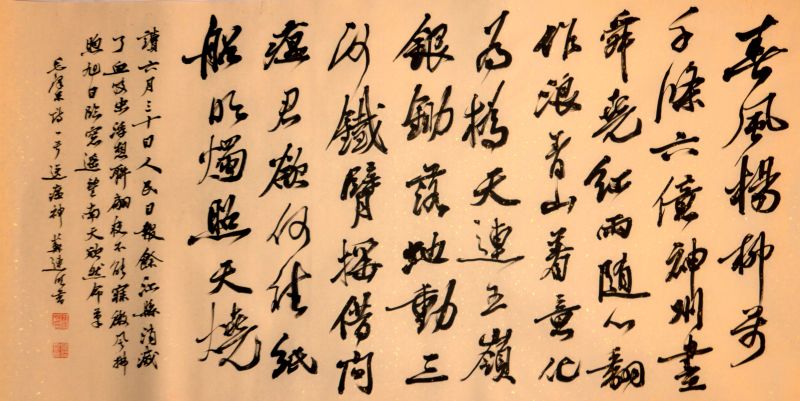 春風楊柳万
千條六億神州盡
舜堯紅雨隨心翻
作浪青山着意化
為橋天連五嶺
銀鋤落地動三
河鐵臂搖借問
瘟君欲何往紙
船明燭照天燒
讀六月三十日人民日報餘江縣消滅
了血吸虫浮想聯翩夜不能寐微風拂
煦旭日臨窗遙望南天欣然命筆
毛澤東詩一首送瘟神